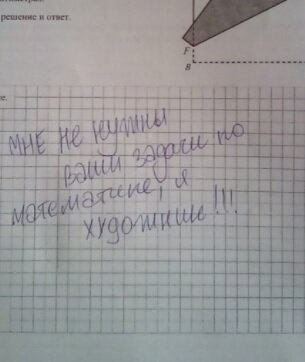 решение и ответ.
F
B
мне не нужны
ваши задачи по
математике, я
художник!!!